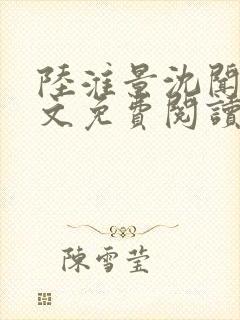 陸淮景沈聞
文免費閱讀
陳雪莹